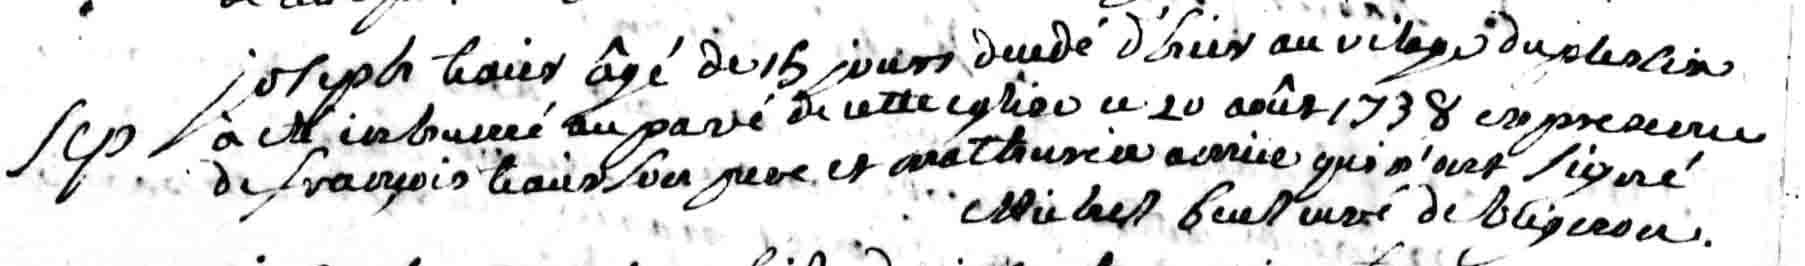 joseph âgé de 15 jours decedé d'hier au vilage duplessix
Sep à eté inhumé au pavé de cette eglise ce 20 août 1738 en presence
de françois son pere et mathurin qui n'ont signé
Michel curé de